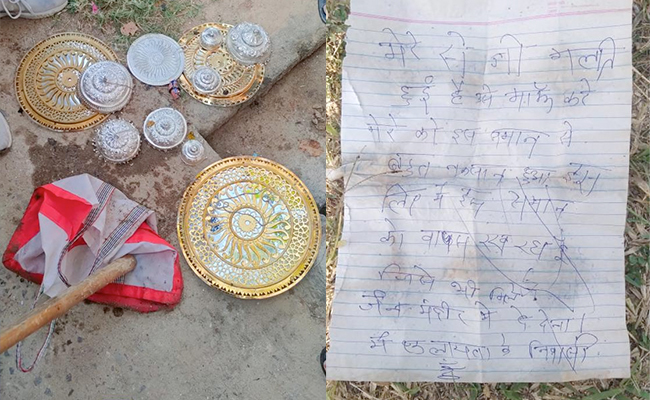 मेरे से जो गलति
हुई है वो माफ करे
मेरे को इस समान से
बहुत नुकसान हुआ इस
लिए मैं इस समान
को वापस रख रहा हूँ
जिसे भी मिले
जैन मंदीर में दे देना।
मैं के निवासी
हूँ